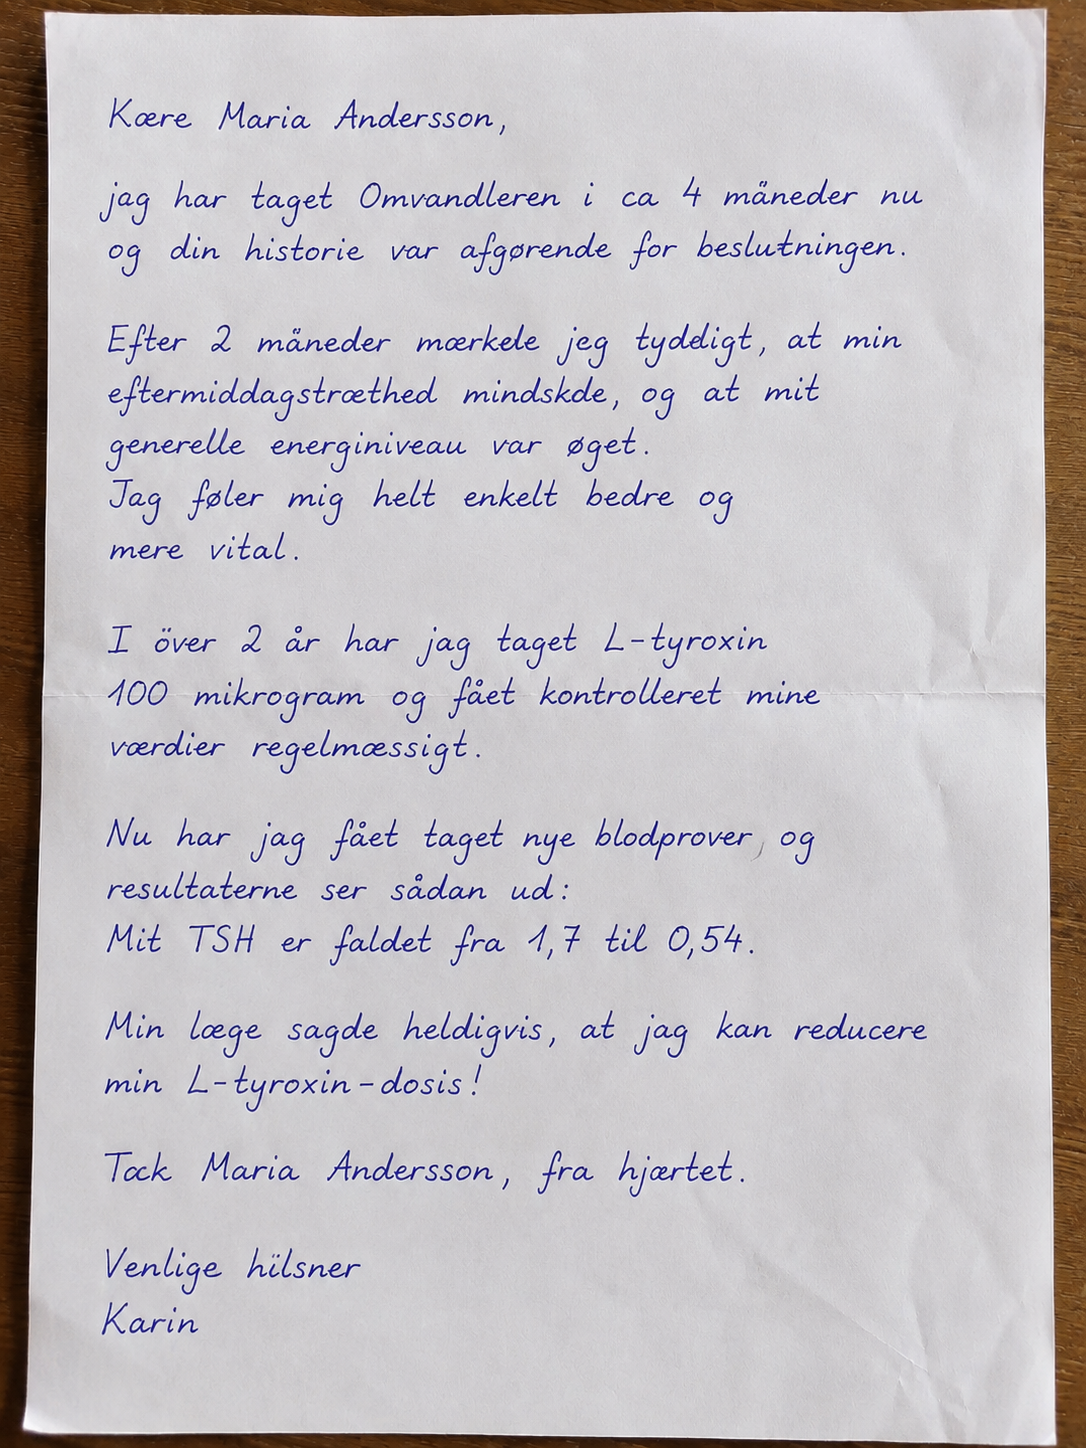 Kære Maria Andersson,
jag har taget Omvandleren i ca 4 mäneder nu
og din historie var afgørende for beslutningen.
Efter 2 mäneder mærkele jeg tyddigt, at min
eftermiddagstræthed mindskde, og at mit
generelle energiniveau var øget.
Jag føler mig helt enkelt bedre og
mere vital.
I över 2 år har jag taget L-tyroxin
100 mikrogram og fået kontrolleret mine
værdier regelmæssigt.
Nu har jag fået taget nye blodprover, og
resultaterne ser sådan ud:
Mit TSH er faldet fra 1,7 til 0,54.
Min læge sagde heldigvis, at jag kan reducere
min L-tyroxin-dosis!
Tack Maria Andersson, fra hjærtet.
Venlige hïlsner
Karin